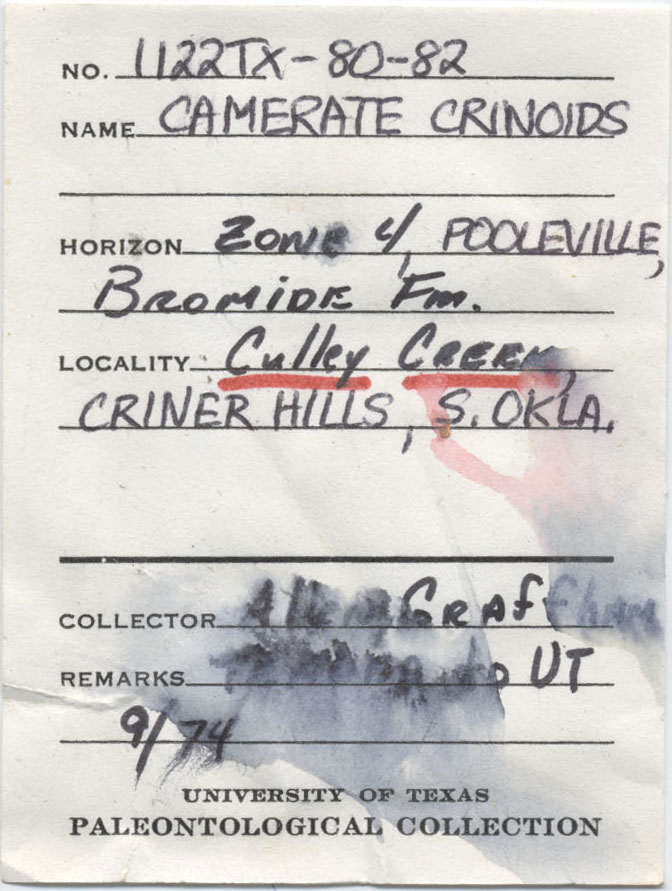 NO. 1122TX-80-82
NAME CAMERATE CRINOIDS
HORIZON Zone 4, POOLEVILLE,
BROMIDE Fm.
LOCALITY Culley CREEK,
CRINER HILLS, S. OKLA.
COLLECTOR Allen Graffham
REMARKS UT
9/74
UNIVERSITY OF TEXAS
PALEONTOLOGICAL COLLECTION